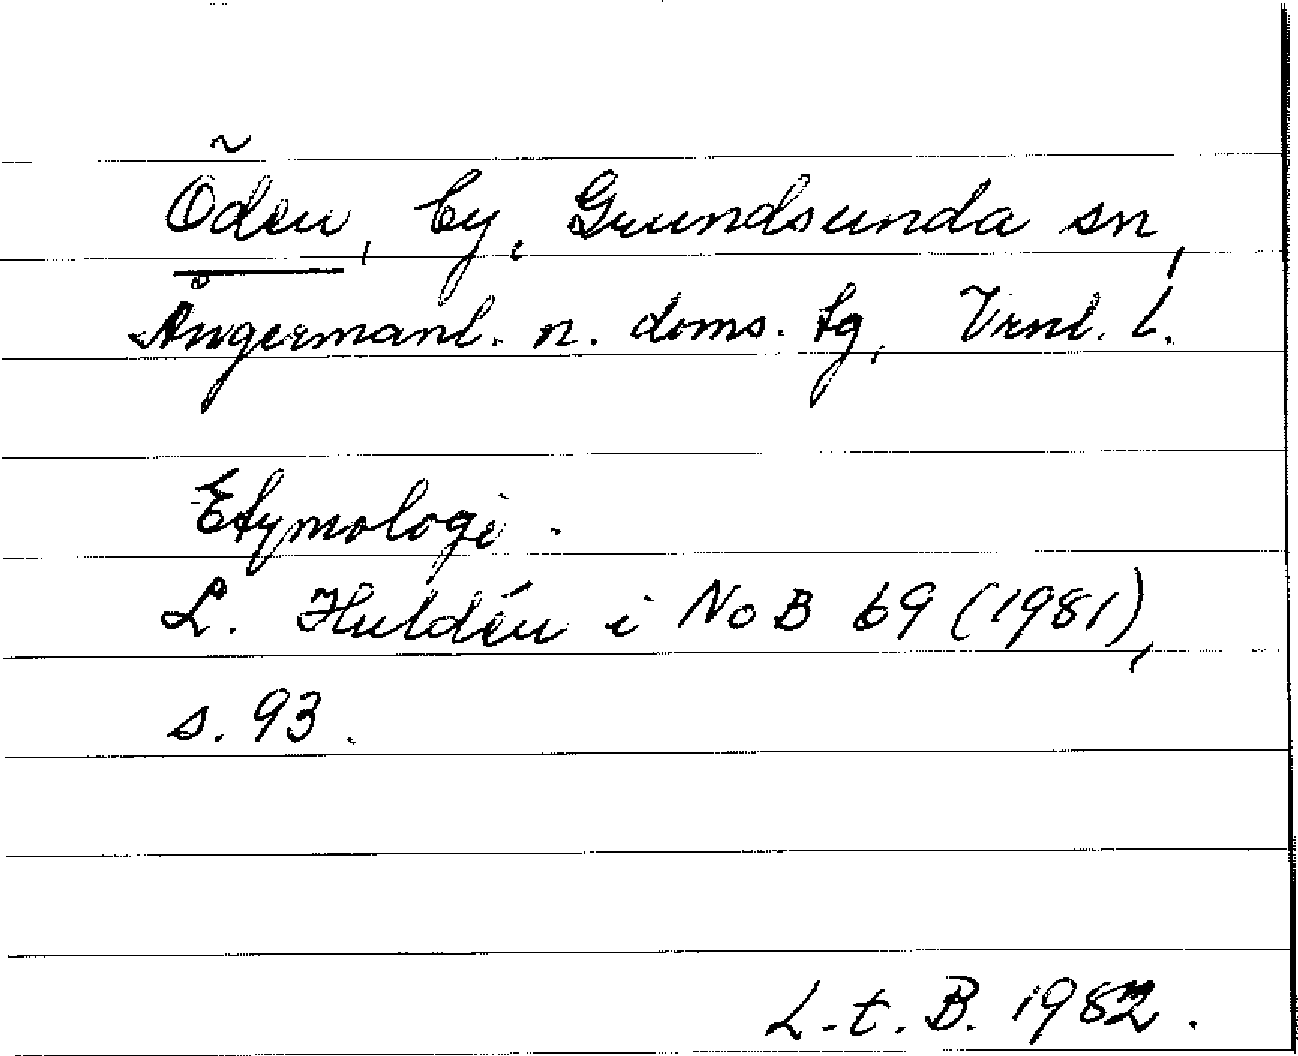 Öden, by, Grundsunda sn,
Ångermanl. n. doms. tg, Vrnl. l.
Etymologi.
L. Huldén i NoB 69 (1981),
s. 93.
L.t.B. 1982.